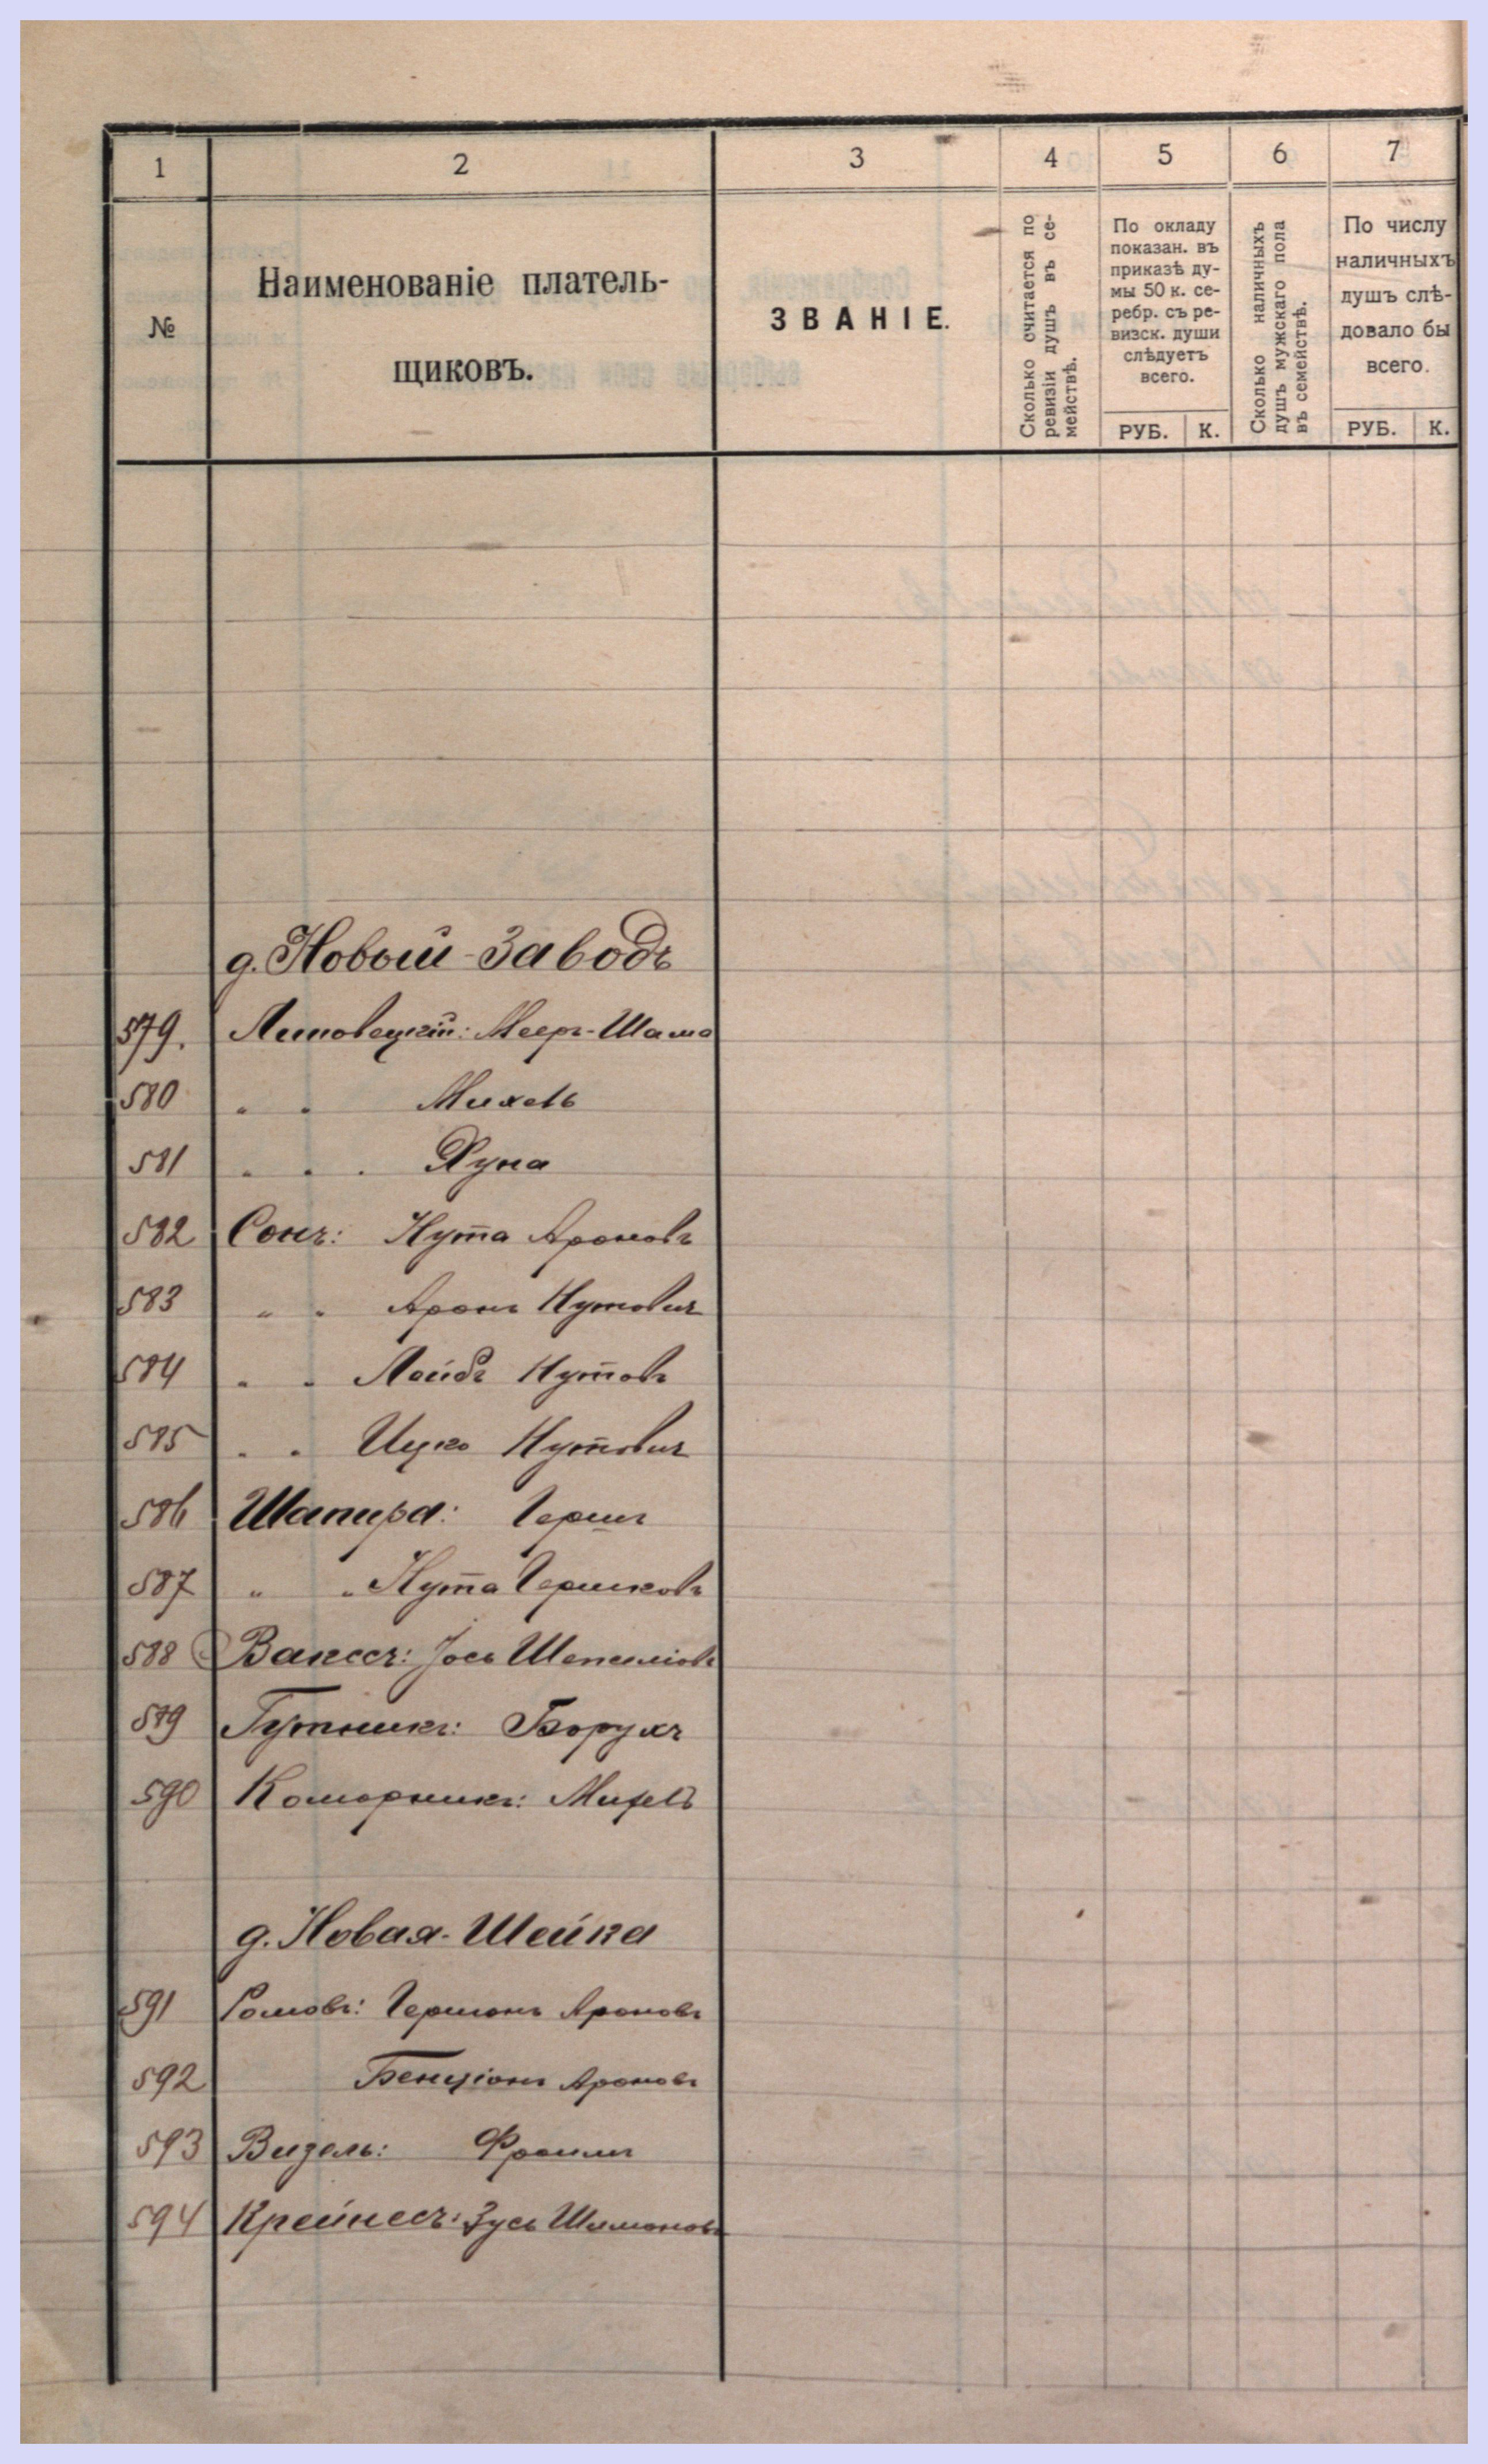 1 2 3 4 5 6 7
№
Наименованіе платель-
щиковъ.
ЗВАНІЕ.
Сколько считается по
ревизіи душъ въ се-
мействѣ.
По окладу
показан. въ
приказѣ ду-
мы 50 к. се-
ребр. съ ре-
визск. души
слѣдуетъ
всего.
РУБ. К.
Сколько наличныхъ
душъ мужскаго пола
въ семействѣ.
По числу
наличныхъ
душъ слѣ-
довало бы
всего.
РУБ. К.
д. Новый-Заводъ
579. Липовецкій: Меер-Шама
580 " " Михель
581 " " " Хуна
582 Сонъ: Нута Ароновъ
583 " " Аронъ Нутовичъ
584 " " Лейбъ Нутовъ
585 " " Ицко Нутовичъ
586 Шапира: Гершъ
587 " " Нута Гершковъ
588 Ваксъ: Іось
589 Гутникъ: Борухъ
590 Коморникъ: Михель
д. Новая-Шейка
591 Ромовъ: Гершонъ Ароновъ
592 Бенціонъ Ароновъ
593 Визель: Фроимъ
594 Крейнесъ: Зусь Шимоновъ